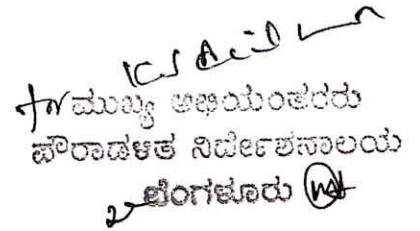 for ಮುಖ್ಯ ಅಭಿಯಂತರರು
ಪೌರಾಡಳಿತ ನಿರ್ದೇಶನಾಲಯ
ಬೆಂಗಳೂರು